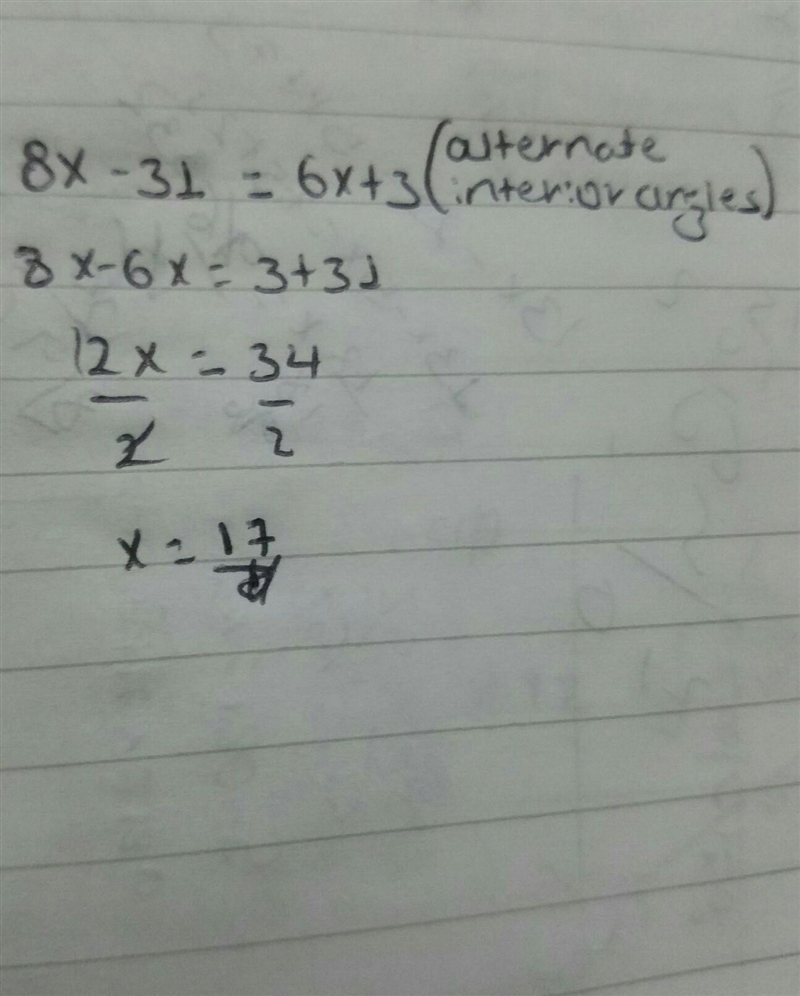 8x - 31 = 6x + 3 (alternate interior angles)
8x - 6x = 3 + 31
12x = 34
2 2
x = 17